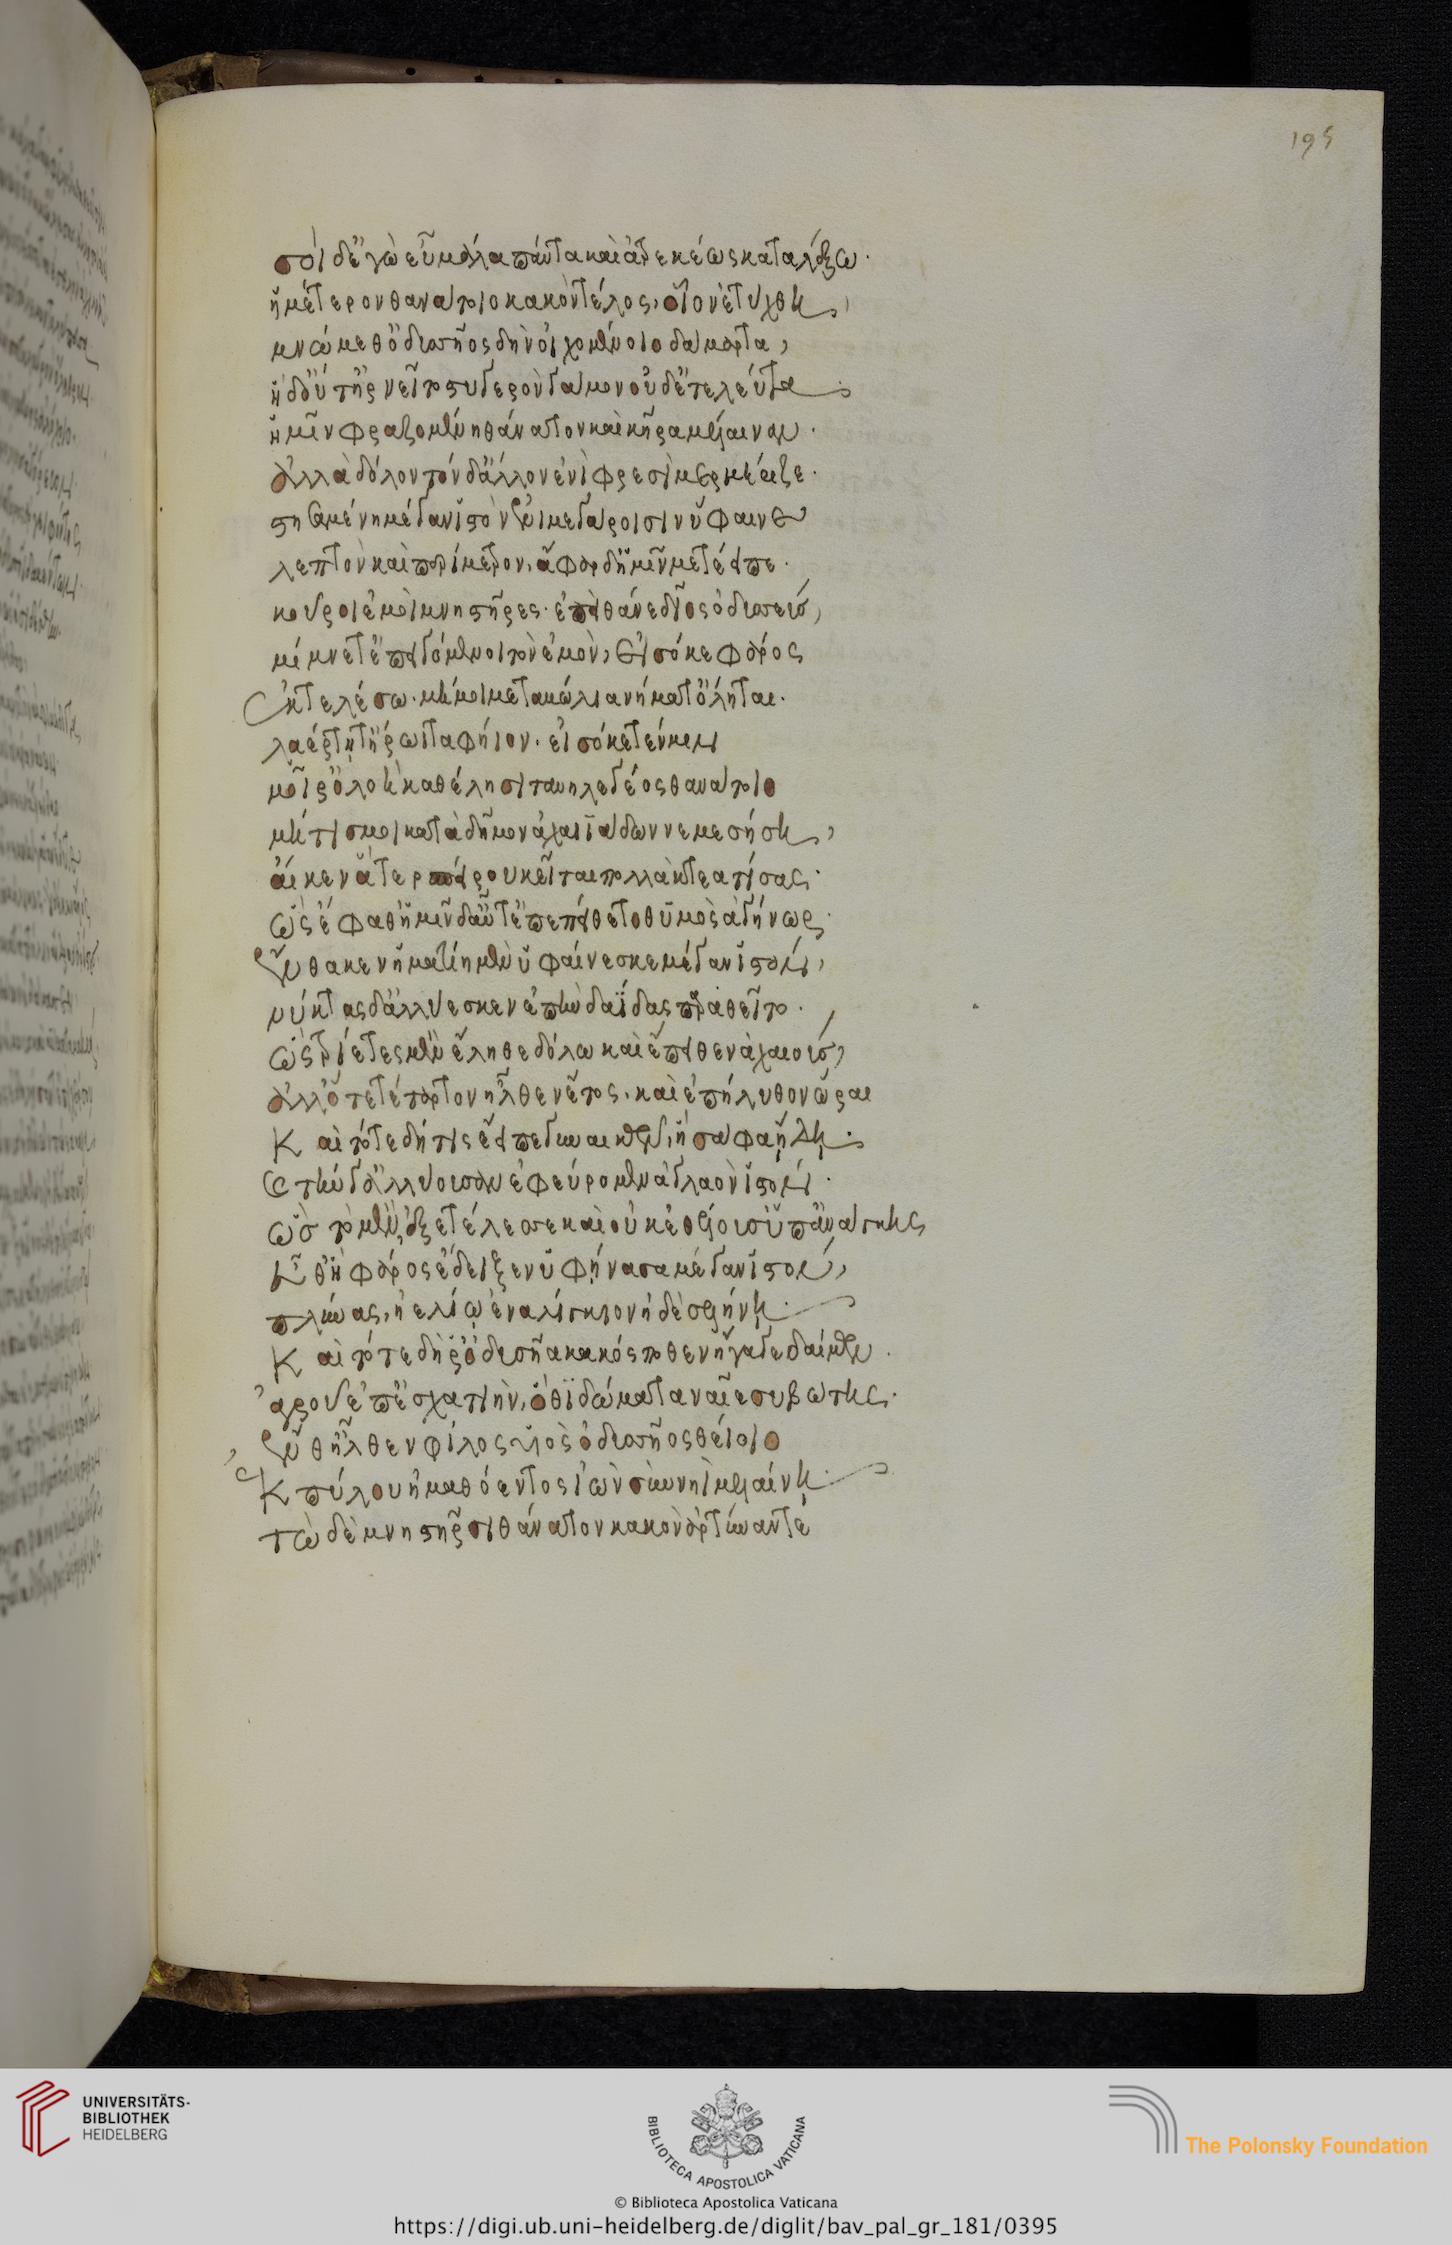 195
σοὶ δ' ἐγὼ εὖ μάλα πάντα καὶ ἀτρεκέως καταλέξω·
ἡμέτερον θανάτοιο κακὸν τέλος, οἷον ἐτύχθη,
μνώμεθ' ὀδυσσῆος δὴν οἰχομένοιο δάμαρτα,
ἡ δ' οὔτ' ἠρνεῖτο στυγερὸν γάμον οὐδὲ τελεύτα
ἡμῖν φραζομένη θάνατον καὶ κῆρα μέλαιναν·
ἀλλὰ δόλον τόνδ' ἄλλον ἐνὶ φρεσὶ μερμέριξε·
στησαμένη μέγαν ἱστὸν ἐνὶ μεγάροισιν ὕφαινε
λεπτὸν καὶ περίμετρον, ἄφαρ δ' ἡμῖν μετέειπε·
κοῦροι ἐμοὶ μνηστῆρες· ἐπεὶ θάνε δῖος ὀδυσσεύς,
μίμνετ' ἐπειγόμενοι τὸν ἐμὸν, εἰσόκε φᾶρος
ἐκτελέσω· μή μοι μεταμώλια νήματ' ὄληται·
λαέρτῃ ἥρωι ταφήιον· εἰσόκε τέν κεν
μοῖρ' ὀλοὴ καθέλησι τανηλεγέος θανάτοιο
μή τίς μοι κατὰ δῆμον ἀχαιϊάδων νεμεσήσῃ,
αἴ κεν ἄτερ σπείρου κεῖται πολλὰ κτεατίσας·
ὣς ἔφαθ' ἡμῖν δ' αὖτ' ἐπεπείθετο θυμὸς ἀγήνωρ·
ἔνθά κεν ἠματίη μὲν ὑφαίνεσκε μέγαν ἱστόν,
νύκτας δ' ἀλλύεσκεν ἐπὴν δαΐδας παραθεῖτο·
ὣς τρίετες μὲν ἔληθε δόλῳ καὶ ἔπειθεν ἀχαιούς,
ἀλλ' ὅτε τέταρτον ἦλθεν ἔτος, καὶ ἐπήλυθον ὧραι
Καὶ τότε δή τις ἔειπε γυναικῶν, ἣ σάφα ᾔδη·
Καὶ τήν γ' ἀλλύουσαν ἐφεύρομεν ἀγλαὸν ἱστόν·
ὣς τὸ μὲν ἐξετέλεσσε καὶ οὐκ ἐθέλουσ' ὑπ' ἀνάγκης
Εὖθ' ἡ φᾶρος ἔδειξεν ὑφήνασα μέγαν ἱστόν,
πλύνας, ἠελίῳ ἐναλίγκιον ἠδὲ σελήνῃ·
Καὶ τότε δή ῥ' ὀδυσῆα κακός ποθεν ἤγαγε δαίμων·
ἀγροῦ ἐπ' ἐσχατιὴν, ὅθι δώματα ναῖε συβώτης·
ἔνθ' ἦλθεν φίλος υἱὸς ὀδυσσῆος θείοιο
ἐκ πύλου ἠμαθόεντος ἰὼν σὺν νηὶ μελαίνῃ·
τὼ δὲ μνηστῆρσι θάνατον κακὸν ἀρτύναντε
UNIVERSITÄTS-
BIBLIOTHEK
HEIDELBERG
BIBLIOTECA APOSTOLICA VATICANA
The Polonsky Foundation
© Biblioteca Apostolica Vaticana
https://digi.ub.uni-heidelberg.de/diglit/bav_pal_gr_181/0395